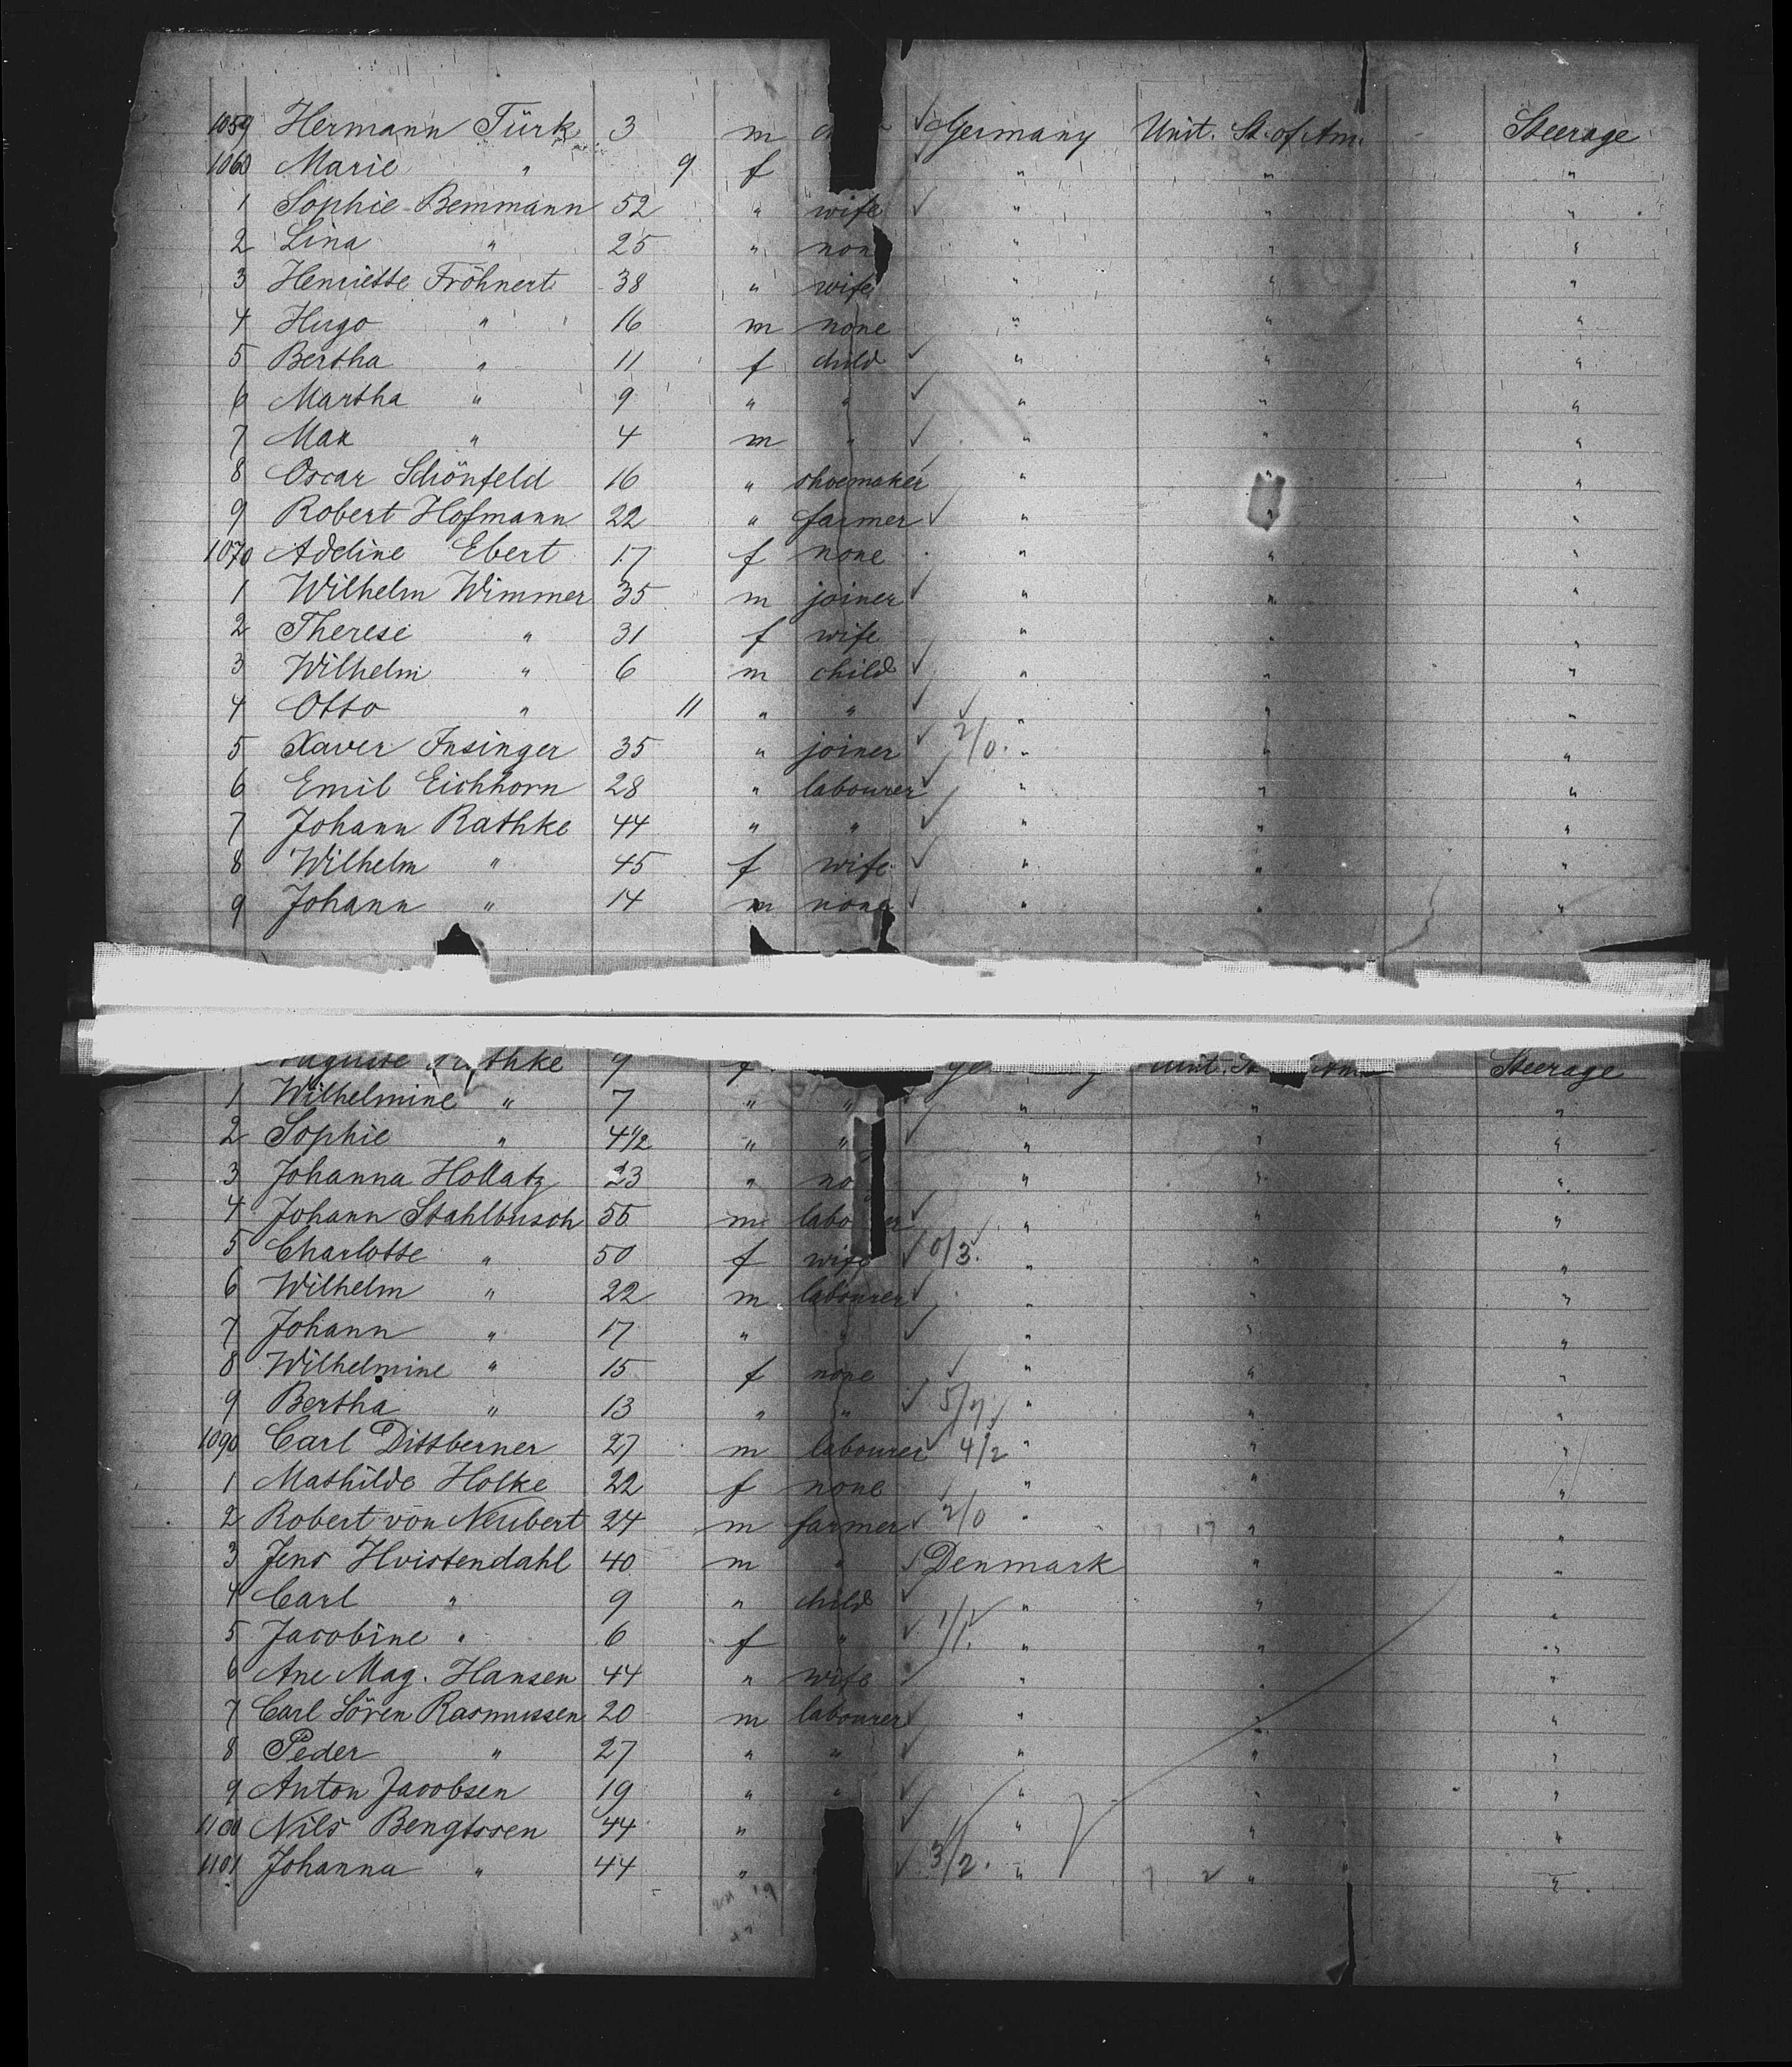 1059 Hermann Türk 3 m Germany Unit. St. of Am. Steerage
1060 Marie " 9 f " " "
1 Sophie Bemmann 52 " wife " " "
2 Lina " 25 " non " " "
3 Henriette Fröhnert 38 " wife " " "
4 Hugo " 16 m none " " "
5 Bertha " 11 f child " " "
6 Martha " 9 " " " " "
7 Max " 4 m " " " "
8 Oscar Schönfeld 16 " shoemaker " " "
9 Robert Hofmann 22 " farmer " " "
1070 Adeline Ebert 17 f none " " "
1 Wilhelm Wimmer 35 m joiner " " "
2 Therese " 31 f wife " " "
3 Wilhelm " 6 m child " " "
4 Otto " 11 " " " " "
5 Xaver Insinger 35 " joiner 2/0. " " "
6 Emil Eichhorn 28 " labourer " " "
7 Johann Rathke 44 " " " " "
8 Wilhelm " 45 f wife " " "
9 Johann " 14 m none " " "
Auguste Rathke 9 f Steerage
1 Wilhelmine " 7 " " " " "
2 Sophie " 4 1/2 " " " " "
3 Johanna Hollatz 23 " no " " "
4 Johann Stahlbusch 55 m labourer " " "
5 Charlotte " 50 f wife 0/3. " " "
6 Wilhelm " 22 m labourer " " "
7 Johann " 17 " " " " "
8 Wilhelmine " 15 f none " " "
9 Bertha " 13 " " 5/4 " " "
1090 Carl Dittberner 27 m labourer 4/2 " " "
1 Mathilde Holke 22 f none " " "
2 Robert von Neubert 24 m farmer 2/0 " 17 17 " "
3 Jens Hvistendahl 40 m " Denmark " "
4 Carl " 9 " child " " "
5 Jacobine " 6 f " 1/1. " " "
6 Ane Mag. Hansen 44 " wife " " "
7 Carl Sören Rasmussen 20 m labourer " " "
8 Peder " 27 " " " " "
9 Anton Jacobsen 19 " " " " "
1100 Nils Bengtssen 44 " " " "
1101 Johanna " 44 " 3/2. " " "